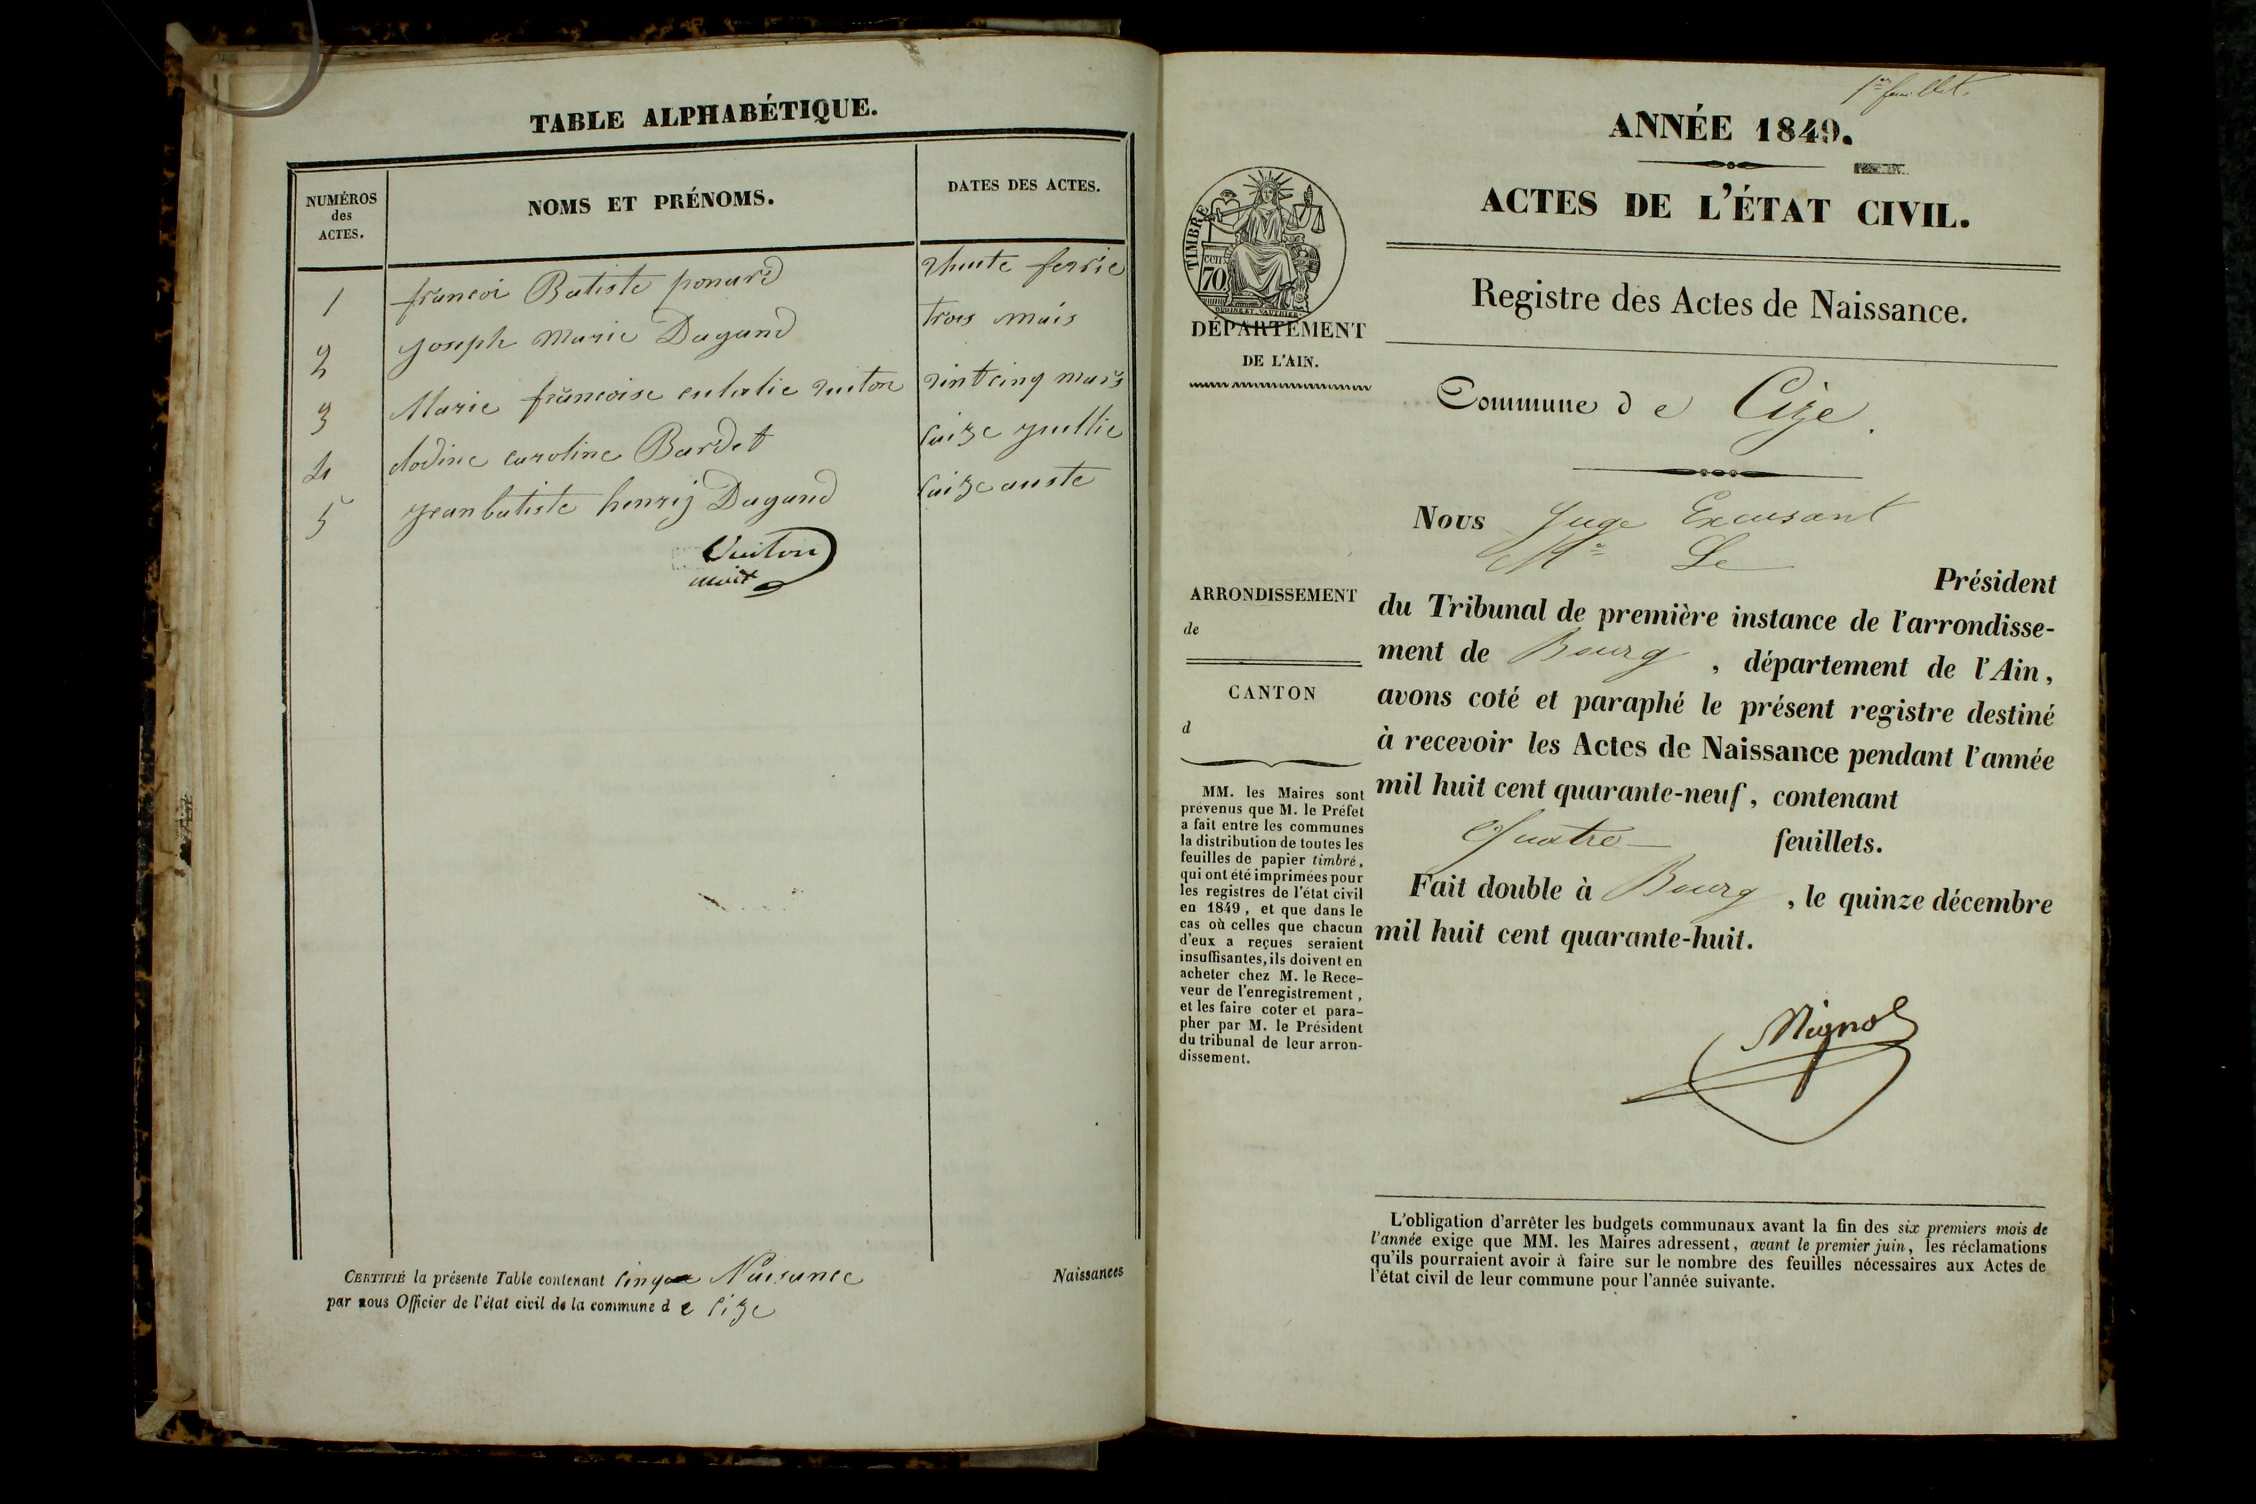 TABLE ALPHABÉTIQUE.
NUMÉROS
des
ACTES.
NOMS ET PRÉNOMS.
DATES DES ACTES.
1 francoi Batiste ponard
2 joseph marie Dagand trois mais
3 Marie francoise eulalie vuiton vint cinq mars
4 clodine caroline Bardet saize juillie
5 jean batiste henrij Dagand saize auste
Vuiton
maire
CERTIFIÉ la présente Table contenant cinq Naisance Naissances
par nous Officier de l'état civil de la commune d e Cize
1er feuillet.
ANNÉE 1849.
ACTES DE L'ÉTAT CIVIL.
TIMBRE
70 cen
DÉPARTEMENT
DE L'AIN.
Registre des Actes de Naissance.
Commune d e Cize.
Nous Juge
Mr Le
Président
du Tribunal de première instance de l'arrondisse-
ment de Bourg, département de l'Ain,
avons coté et paraphé le présent registre destiné
à recevoir les Actes de Naissance pendant l'année
mil huit cent quarante-neuf, contenant
Quatre feuillets.
Fait double à Bourg, le quinze décembre
mil huit cent quarante-huit.
ARRONDISSEMENT
de
CANTON
d
MM. les Maires sont
prévenus que M. le Préfet
a fait entre les communes
la distribution de toutes les
feuilles de papier timbré,
qui ont été imprimées pour
les registres de l'état civil
en 1849, et que dans le
cas où celles que chacun
d'eux a reçues seraient
insuffisantes, ils doivent en
acheter chez M. le Rece-
veur de l'enregistrement,
et les faire coter et para-
pher par M. le Président
du tribunal de leur arron-
dissement.
L'obligation d'arrêter les budgets communaux avant la fin des six premiers mois de
l'année exige que MM. les Maires adressent, avant le premier juin, les réclamations
qu'ils pourraient avoir à faire sur le nombre des feuilles nécessaires aux Actes de
l'état civil de leur commune pour l'année suivante.